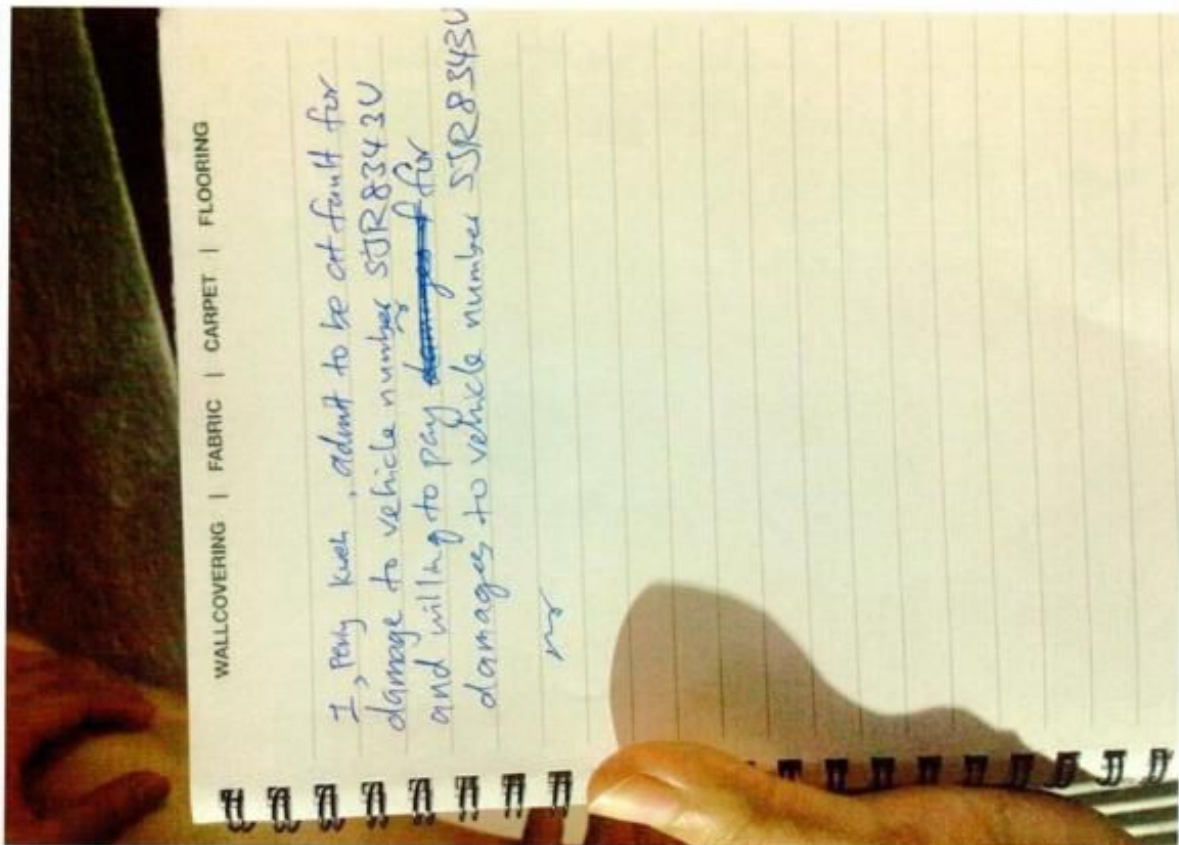 WALLCOVERING | FABRIC | CARPET | FLOORING
I, Perry Kueh, admit to be at fault for
damage to vehicle number SJR8343U
and willing to pay for
damages to vehicle number SJR8343U